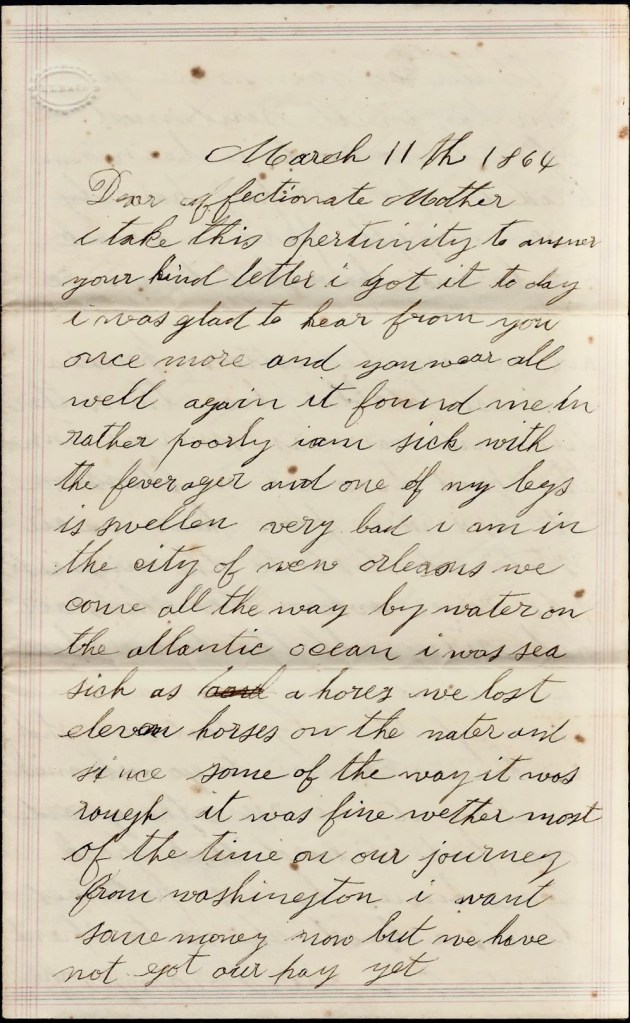 March 11 th 1864
Dear affectionate Mother
i take this opertuinity to answer
your kind letter i got it to day
i was glad to hear from you
once more and you wear all
well again it found me in
rather poorly iam sick with
the fever ager and one of my legs
is swellen very bad i am in
the city of new orleans we
come all the way by water on
the atlantic ocean i was sea
sick as a hores we lost
eleven horses on the water and
since some of the way it was
rough it was fine wether most
of the time on our journey
from washington i want
some money now but we have
not got our pay yet